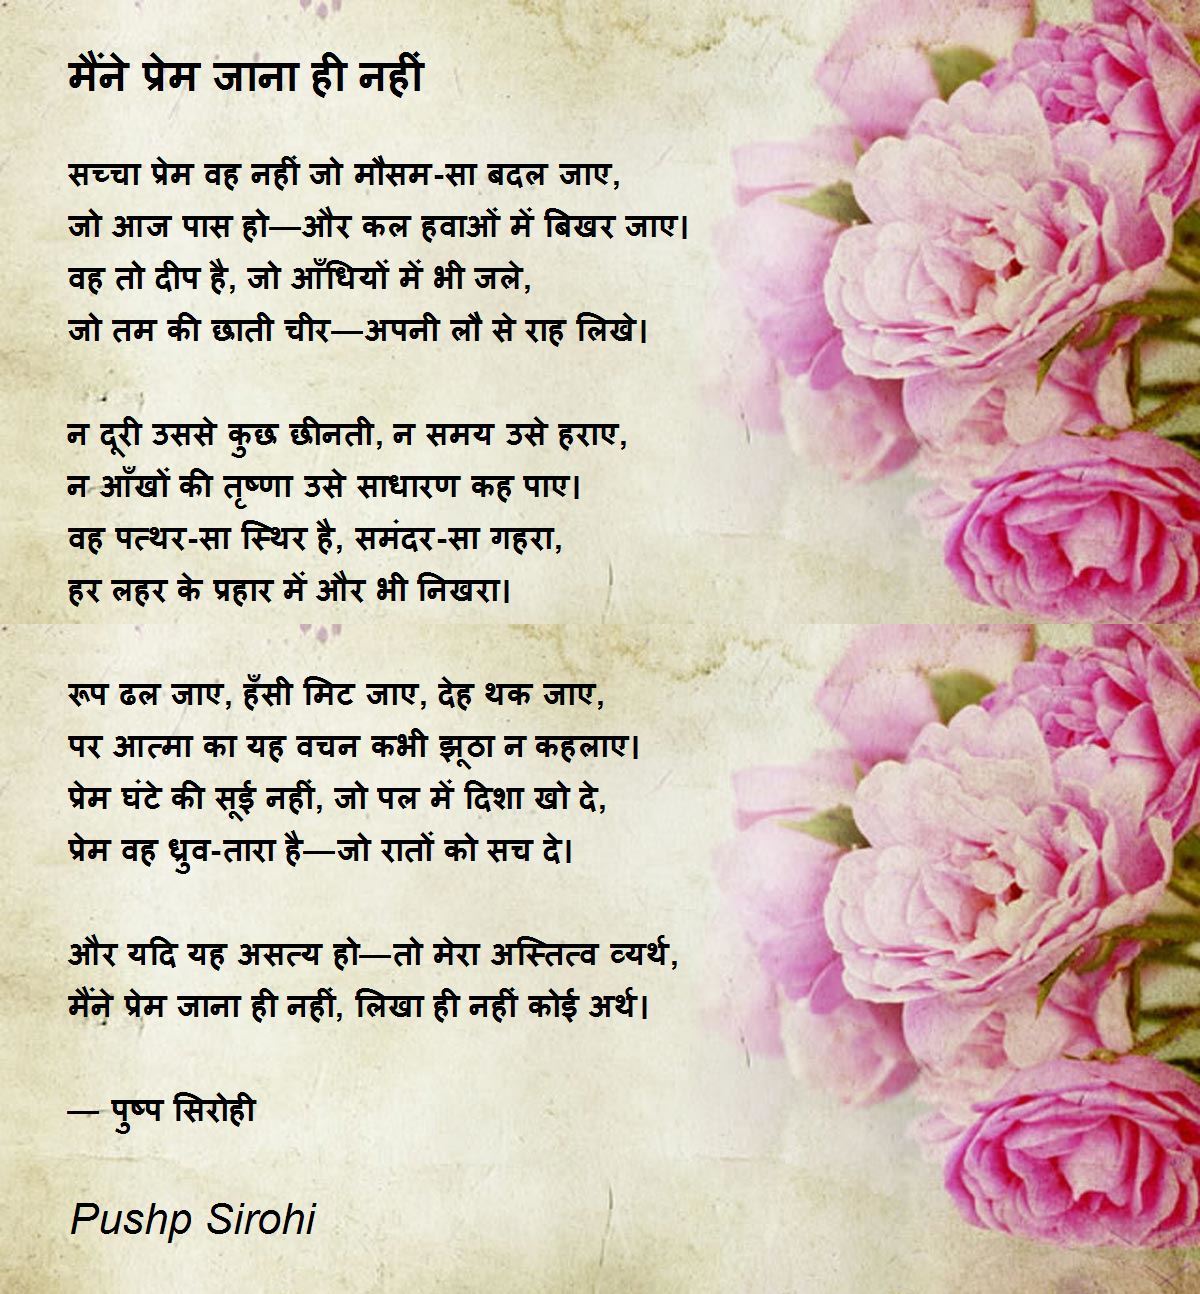 मैंने प्रेम जाना ही नहीं
सच्चा प्रेम वह नहीं जो मौसम-सा बदल जाए,
जो आज पास हो—और कल हवाओं में बिखर जाए।
वह तो दीप है, जो आँधियों में भी जले,
जो तम की छाती चीर—अपनी लौ से राह लिखे।
न दूरी उससे कुछ छीनती, न समय उसे हराए,
न आँखों की तृष्णा उसे साधारण कह पाए।
वह पत्थर-सा स्थिर है, समंदर-सा गहरा,
हर लहर के प्रहार में और भी निखरा।
रूप ढल जाए, हँसी मिट जाए, देह थक जाए,
पर आत्मा का यह वचन कभी झूठा न कहलाए।
प्रेम घंटे की सूई नहीं, जो पल में दिशा खो दे,
प्रेम वह ध्रुव-तारा है—जो रातों को सच दे।
और यदि यह असत्य हो—तो मेरा अस्तित्व व्यर्थ,
मैंने प्रेम जाना ही नहीं, लिखा ही नहीं कोई अर्थ।
— पुष्प सिरोही
Pushp Sirohi